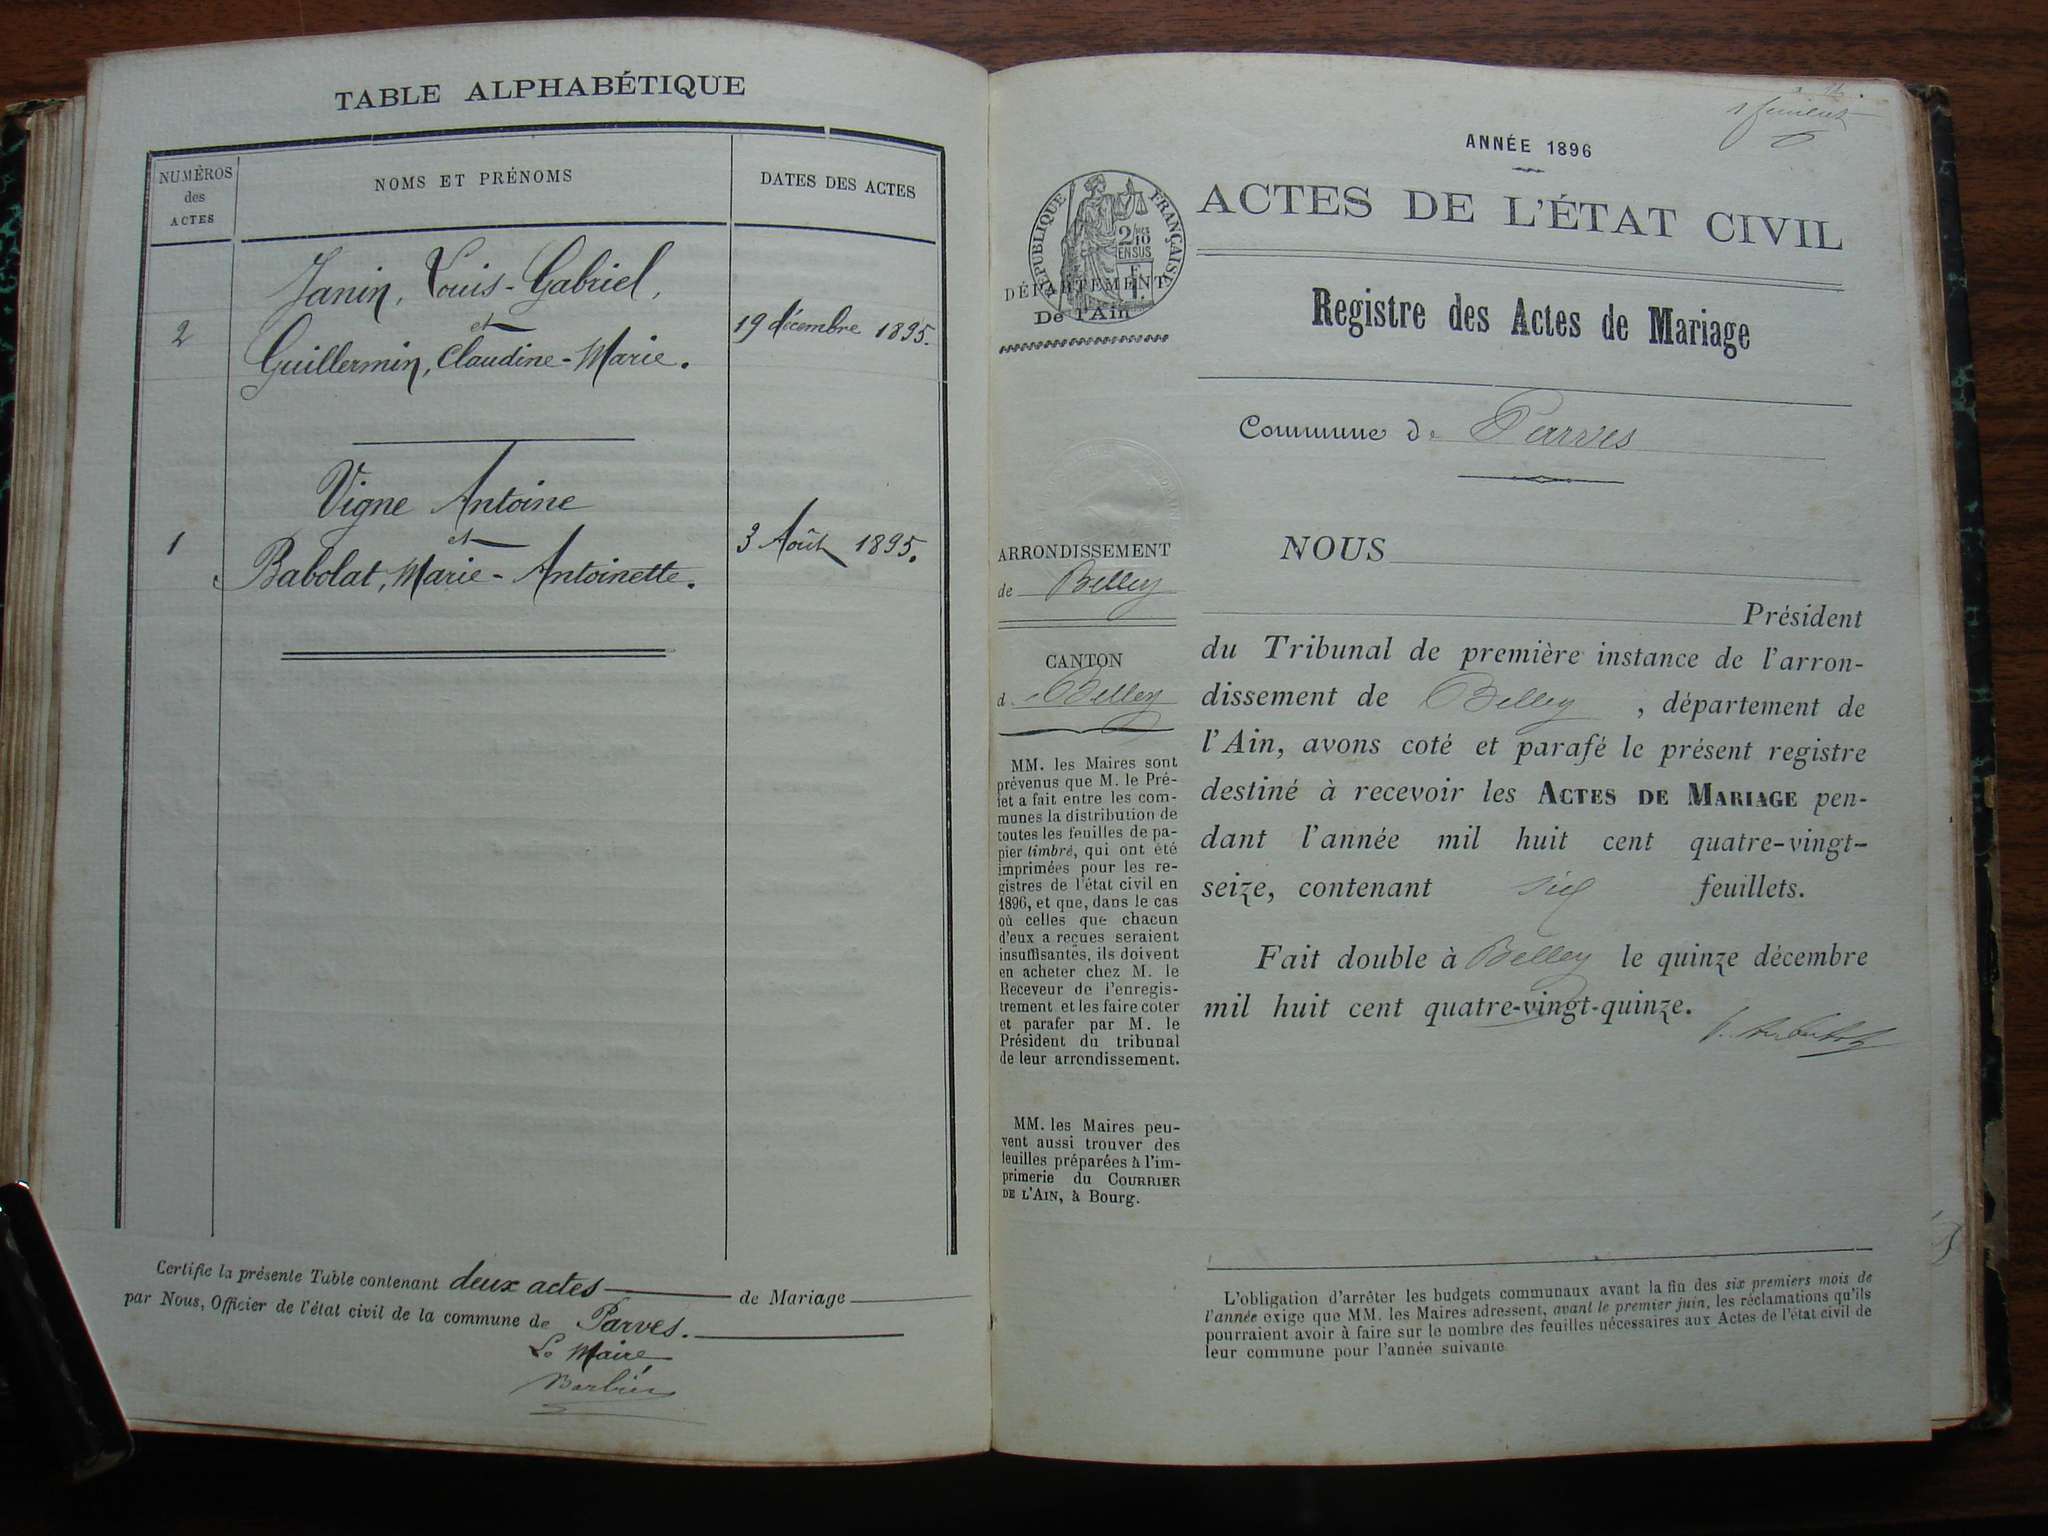 TABLE ALPHABÉTIQUE
NUMÉROS
des
ACTES
NOMS ET PRÉNOMS
DATES DES ACTES
2
Janin, Louis-Gabriel,
et
Guillermin, Claudine-Marie.
19 décembre 1895.
1
Vigne Antoine
et
Babolat, Marie-Antoinette.
3 Août 1895.
Certifie la présente Table contenant deux actes de Mariage
par Nous, Officier de l'état civil de la commune de Parves.
Le Maire
Barbier
ANNÉE 1896
ACTES DE L'ÉTAT CIVIL
RÉPUBLIQUE FRANÇAISE
2/10
EN SUS
DÉPARTEMENT
De l'Ain
Registre des Actes de Mariage
Commune de Parves
ARRONDISSEMENT
de Belley
CANTON
de Belley
MM. les Maires sont
prévenus que M. le Pré-
fet a fait entre les com-
munes la distribution de
toutes les feuilles de pa-
pier timbré, qui ont été
imprimées pour les re-
gistres de l'état civil en
1896, et que, dans le cas
où celles que chacun
d'eux a reçues seraient
insuffisantes, ils doivent
en acheter chez M. le
Receveur de l'enregis-
trement et les faire coter
et parafer par M. le
Président du tribunal
de leur arrondissement.
MM. les Maires peu-
vent aussi trouver des
feuilles préparées à l'im-
primerie du COURRIER
DE L'AIN, à Bourg.
NOUS
Président
du Tribunal de première instance de l'arron-
dissement de Belley, département de
l'Ain, avons coté et parafé le présent registre
destiné à recevoir les ACTES DE MARIAGE pen-
dant l'année mil huit cent quatre-vingt-
seize, contenant six feuillets.
Fait double à Belley le quinze décembre
mil huit cent quatre-vingt-quinze.
L'obligation d'arrêter les budgets communaux avant la fin des six premiers mois de
l'année exige que MM. les Maires adressent, avant le premier juin, les réclamations qu'ils
pourraient avoir à faire sur le nombre des feuilles nécessaires aux Actes de l'état civil de
leur commune pour l'année suivante